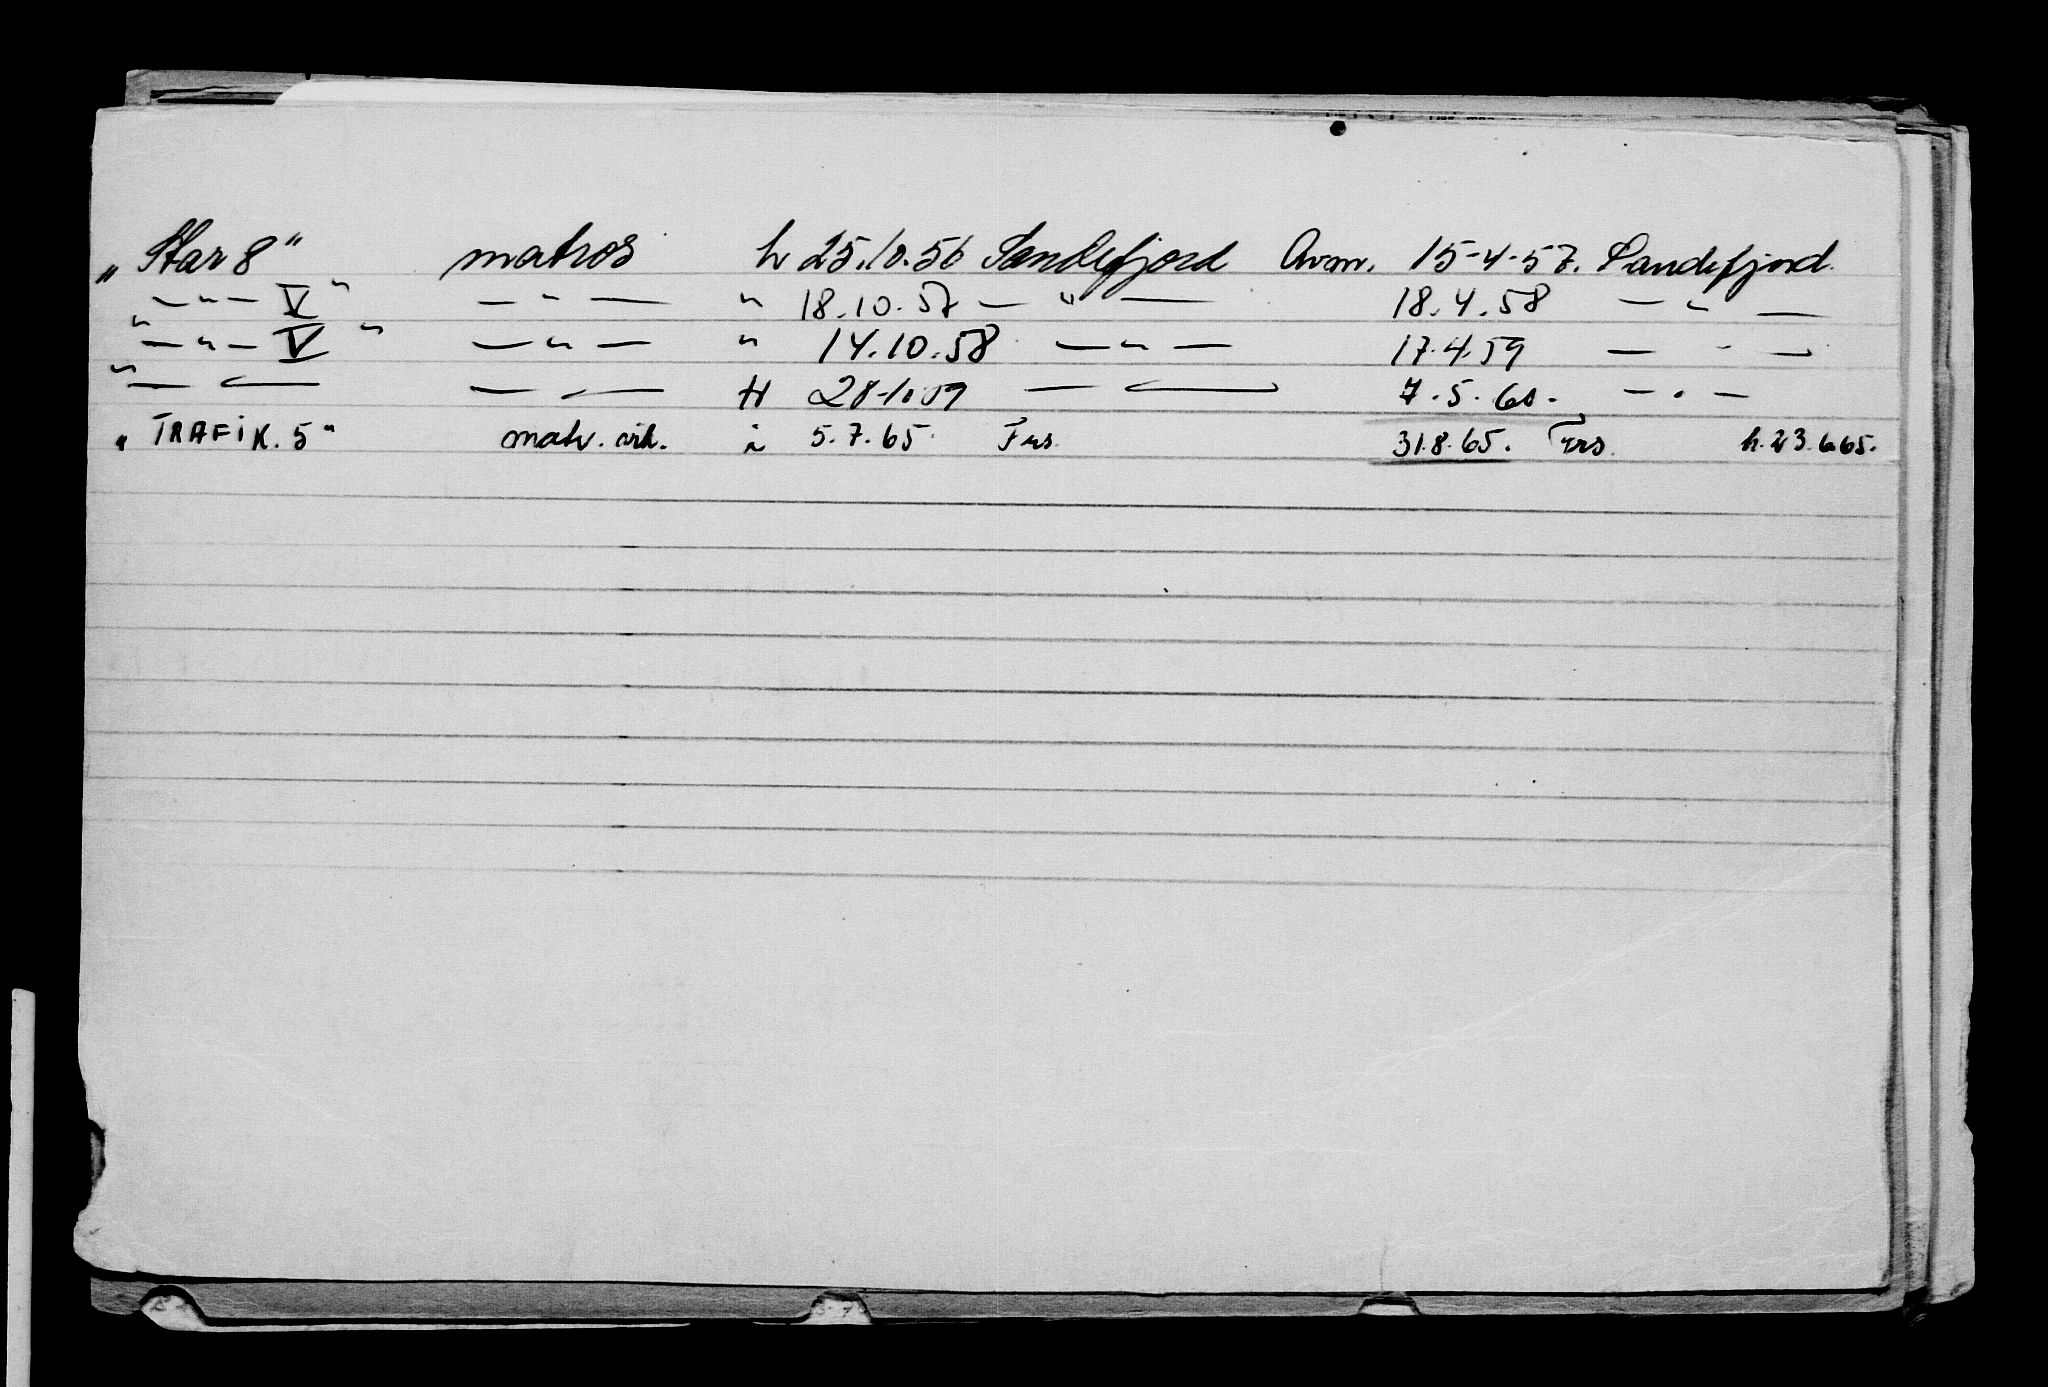 „Star 8" matros h 25.10.56 Sandefjord Avm. 15-4-57. Sandefjord.
— " — V " — " — " 18.10.57 — " — 18.4.58 — " —
" — " — V " — " — " 14.10.58 — " — 17.4.59 — " —
" — " — — " — H 28-10-59 — " — 7.5.60. — " —
„TRAFIK. 5" matr. i 5.7.65. 31.8.65. h. 23.6.65.